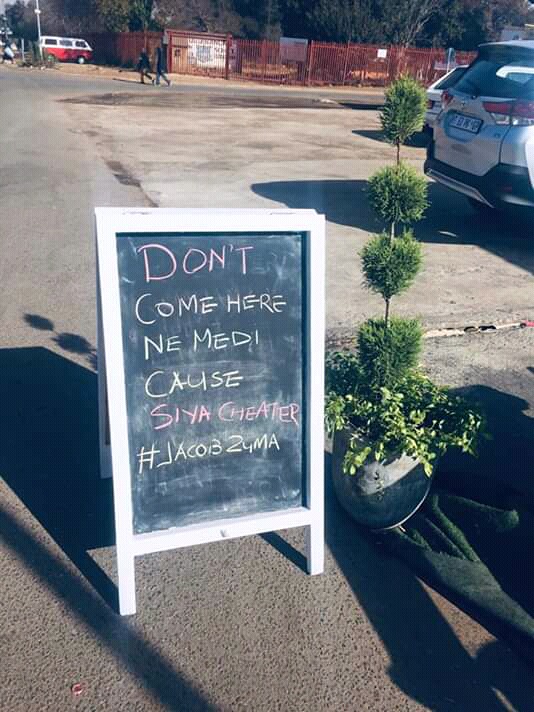 DON'T
COME HERE
NE MEDI
CAUSE
SIYA CHEATER
#JACOB ZUMA